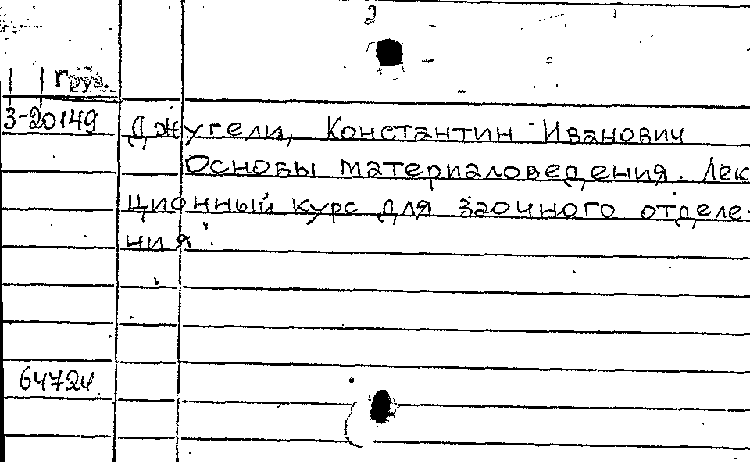 2
Груз.
3-20149
Джугели, Константин Иванович
Основы материаловедения. Лек-
ционный курс для заочного отделе-
ния.
64724